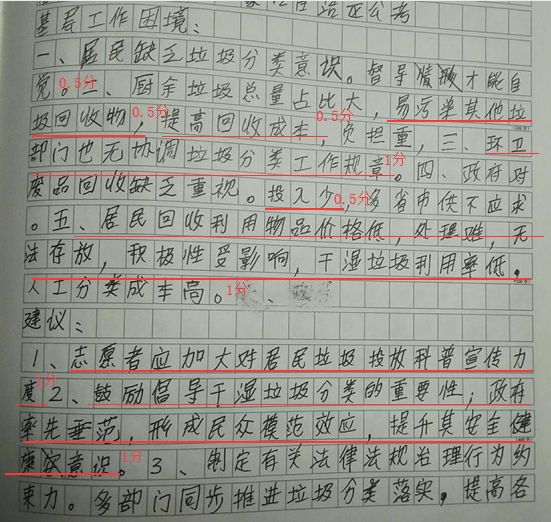 基层工作困境：
一、居民缺乏垃圾分类意识。督导情愿才能自
觉。0.5分二、厨余垃圾总量占比大，易污染其他垃
圾回收物，0.5分提高回收成本，0.5分负担重，三、环卫
部门也无协调垃圾分类工作规章。1分四、政府对
废品回收缺乏重视。投入少，0.5分多省市供不应求
。五、居民回收利用物品价格低，处理难，无
法存放，积极性受影响，干湿垃圾利用率低，
人工分类成本高。1分
建议：
1、志愿者应加大对居民垃圾投放科普宣传力
度1分2、鼓励倡导干湿垃圾分类的重要性；政府
率先垂范，形成民众模范效应，提升其安全健
康意识。1分3、制定有关法律法规治理行为约
束力。多部门同步推进垃圾分类落实，提高各